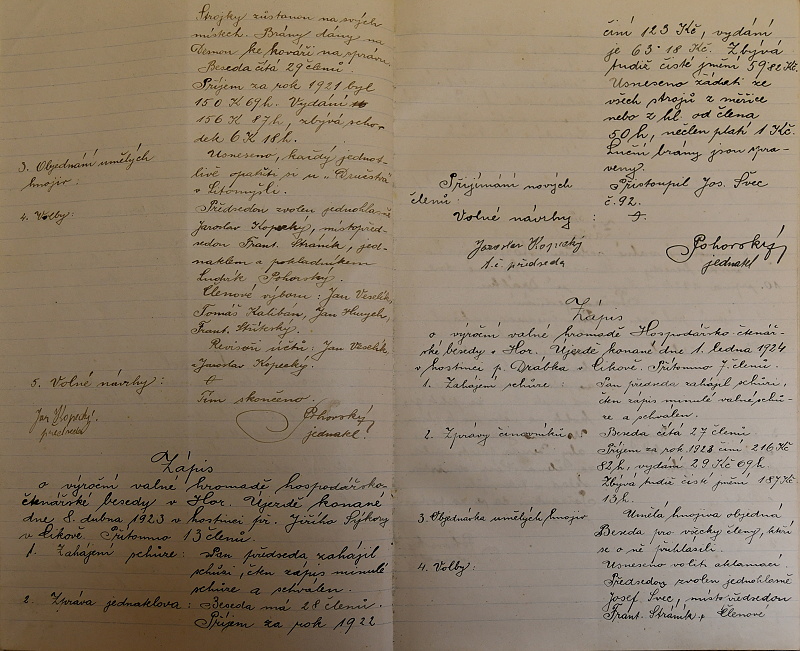 Strojky zůstanou na svých
místech. Brány dány na
Demon ke kováři na správu.
Beseda čítá 29 členů.
Příjem za rok 1921 byl
150 K 69 h. Vydání
156 K 87 h, zbývá scho-
dek 6 K 18 h.
3. Objednání umělých
hnojiv:
Usneseno, každý jednot-
livě opatřiti si u „Družstva“
v Litomyšli.
4. Volby:
Předsedou zvolen jednohlasně
Jaroslav Kopecký, místopřed-
sedou Frant. Stráník, jed-
natelem a pokladníkem
Ludvík Pohorský.
Členové výboru: Jan Veselík,
Tomáš Kalibán, Jan
Frant.
Revisoři účtů: Jan Veselík,
Jaroslav Kopecký.
5. Volné návrhy:
Tím skončeno.
Jan Kopecký.
předseda
Pohorský
jednatel.
Zápis
o výroční valné hromadě hospodářsko-
čtenářské besedy v Hor. Újezdě konané
dne 8. dubna 1923 v hostinci p. Jiřího Sýkory
v Cikově. Přítomno 13 členů.
1. Zahájení schůze: Pan předseda zahájil
schůzi, čten zápis minulé
schůze a schválen.
2. Zpráva jednatelova: Beseda má 28 členů.
Příjem za rok 1922
činí 123 Kč, vydání
je 63·18 Kč. Zbývá
tudíž čisté jmění 59·82 Kč.
Usneseno žádati ze
všech strojů z měřice
nebo z hl. od člena
50 h, nečlen platí 1 Kč.
Luční brány jsou spra-
veny.
Přijímání nových
členů:
Přistoupil Jos. Švec
č. 92.
Volné návrhy:
Jaroslav Kopecký
t.č. předseda
Pohorský
jednatel
Zápis
o výroční valné hromadě Hospodářsko-čtenář-
ské besedy v Hor. Újezdě konané dne 1. ledna 1924
v hostinci p. Drábka v Cikově. Přítomno 7 členů.
1. Zahájení schůze: Pan předseda zahájil schůzi,
čten zápis minulé valné schů-
ze a schválen.
2. Zprávy činovníků: Beseda čítá 27 členů.
Příjem za rok 1923 činí 216 Kč
82 h, vydání 29 Kč 69 h.
Zbývá tudíž čisté jmění 187 Kč
13 h.
3. Objednávka umělých hnojiv
Umělá hnojiva objedná
Beseda pro všecky členy, kteří
se o ně přihlásili.
4. Volby: Usneseno voliti aklamací.
Předsedou zvolen jednohlasně
Josef Švec, místopředsedou
Frant. Stráník. Členové